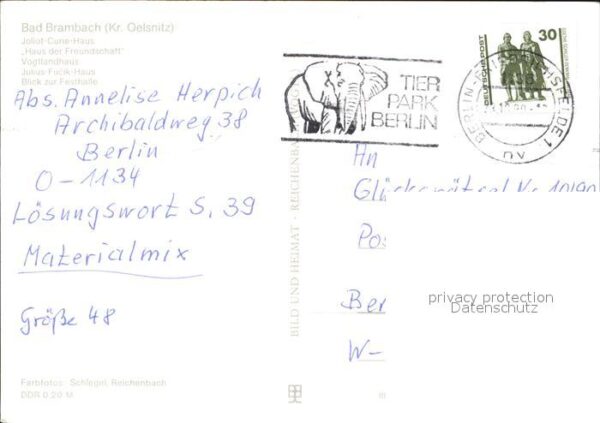 Bad Brambach (Kr. Oelsnitz)
Joliot-Curie-Haus
„Haus der Freundschaft"
Vogtlandhaus
Julius-Fučik-Haus
Blick zur Festhalle
Abs. Annelise Herpich
Archibaldweg 38
Berlin
O-1134
Lösungswort S. 39
Materialmix
Größe 48
Farbfotos: Schlegel, Reichenbach
DDR 0,20 M
BILD UND HEIMAT · REICHENBACH
TIER
PARK
BERLIN
DEUTSCHE POST
30
BERLIN-FRIEDRICHSFELDE 1
nv
An
Glücksrätsel Nr. 10/90
Pos
Ber
W-
privacy protection
Datenschutz
III